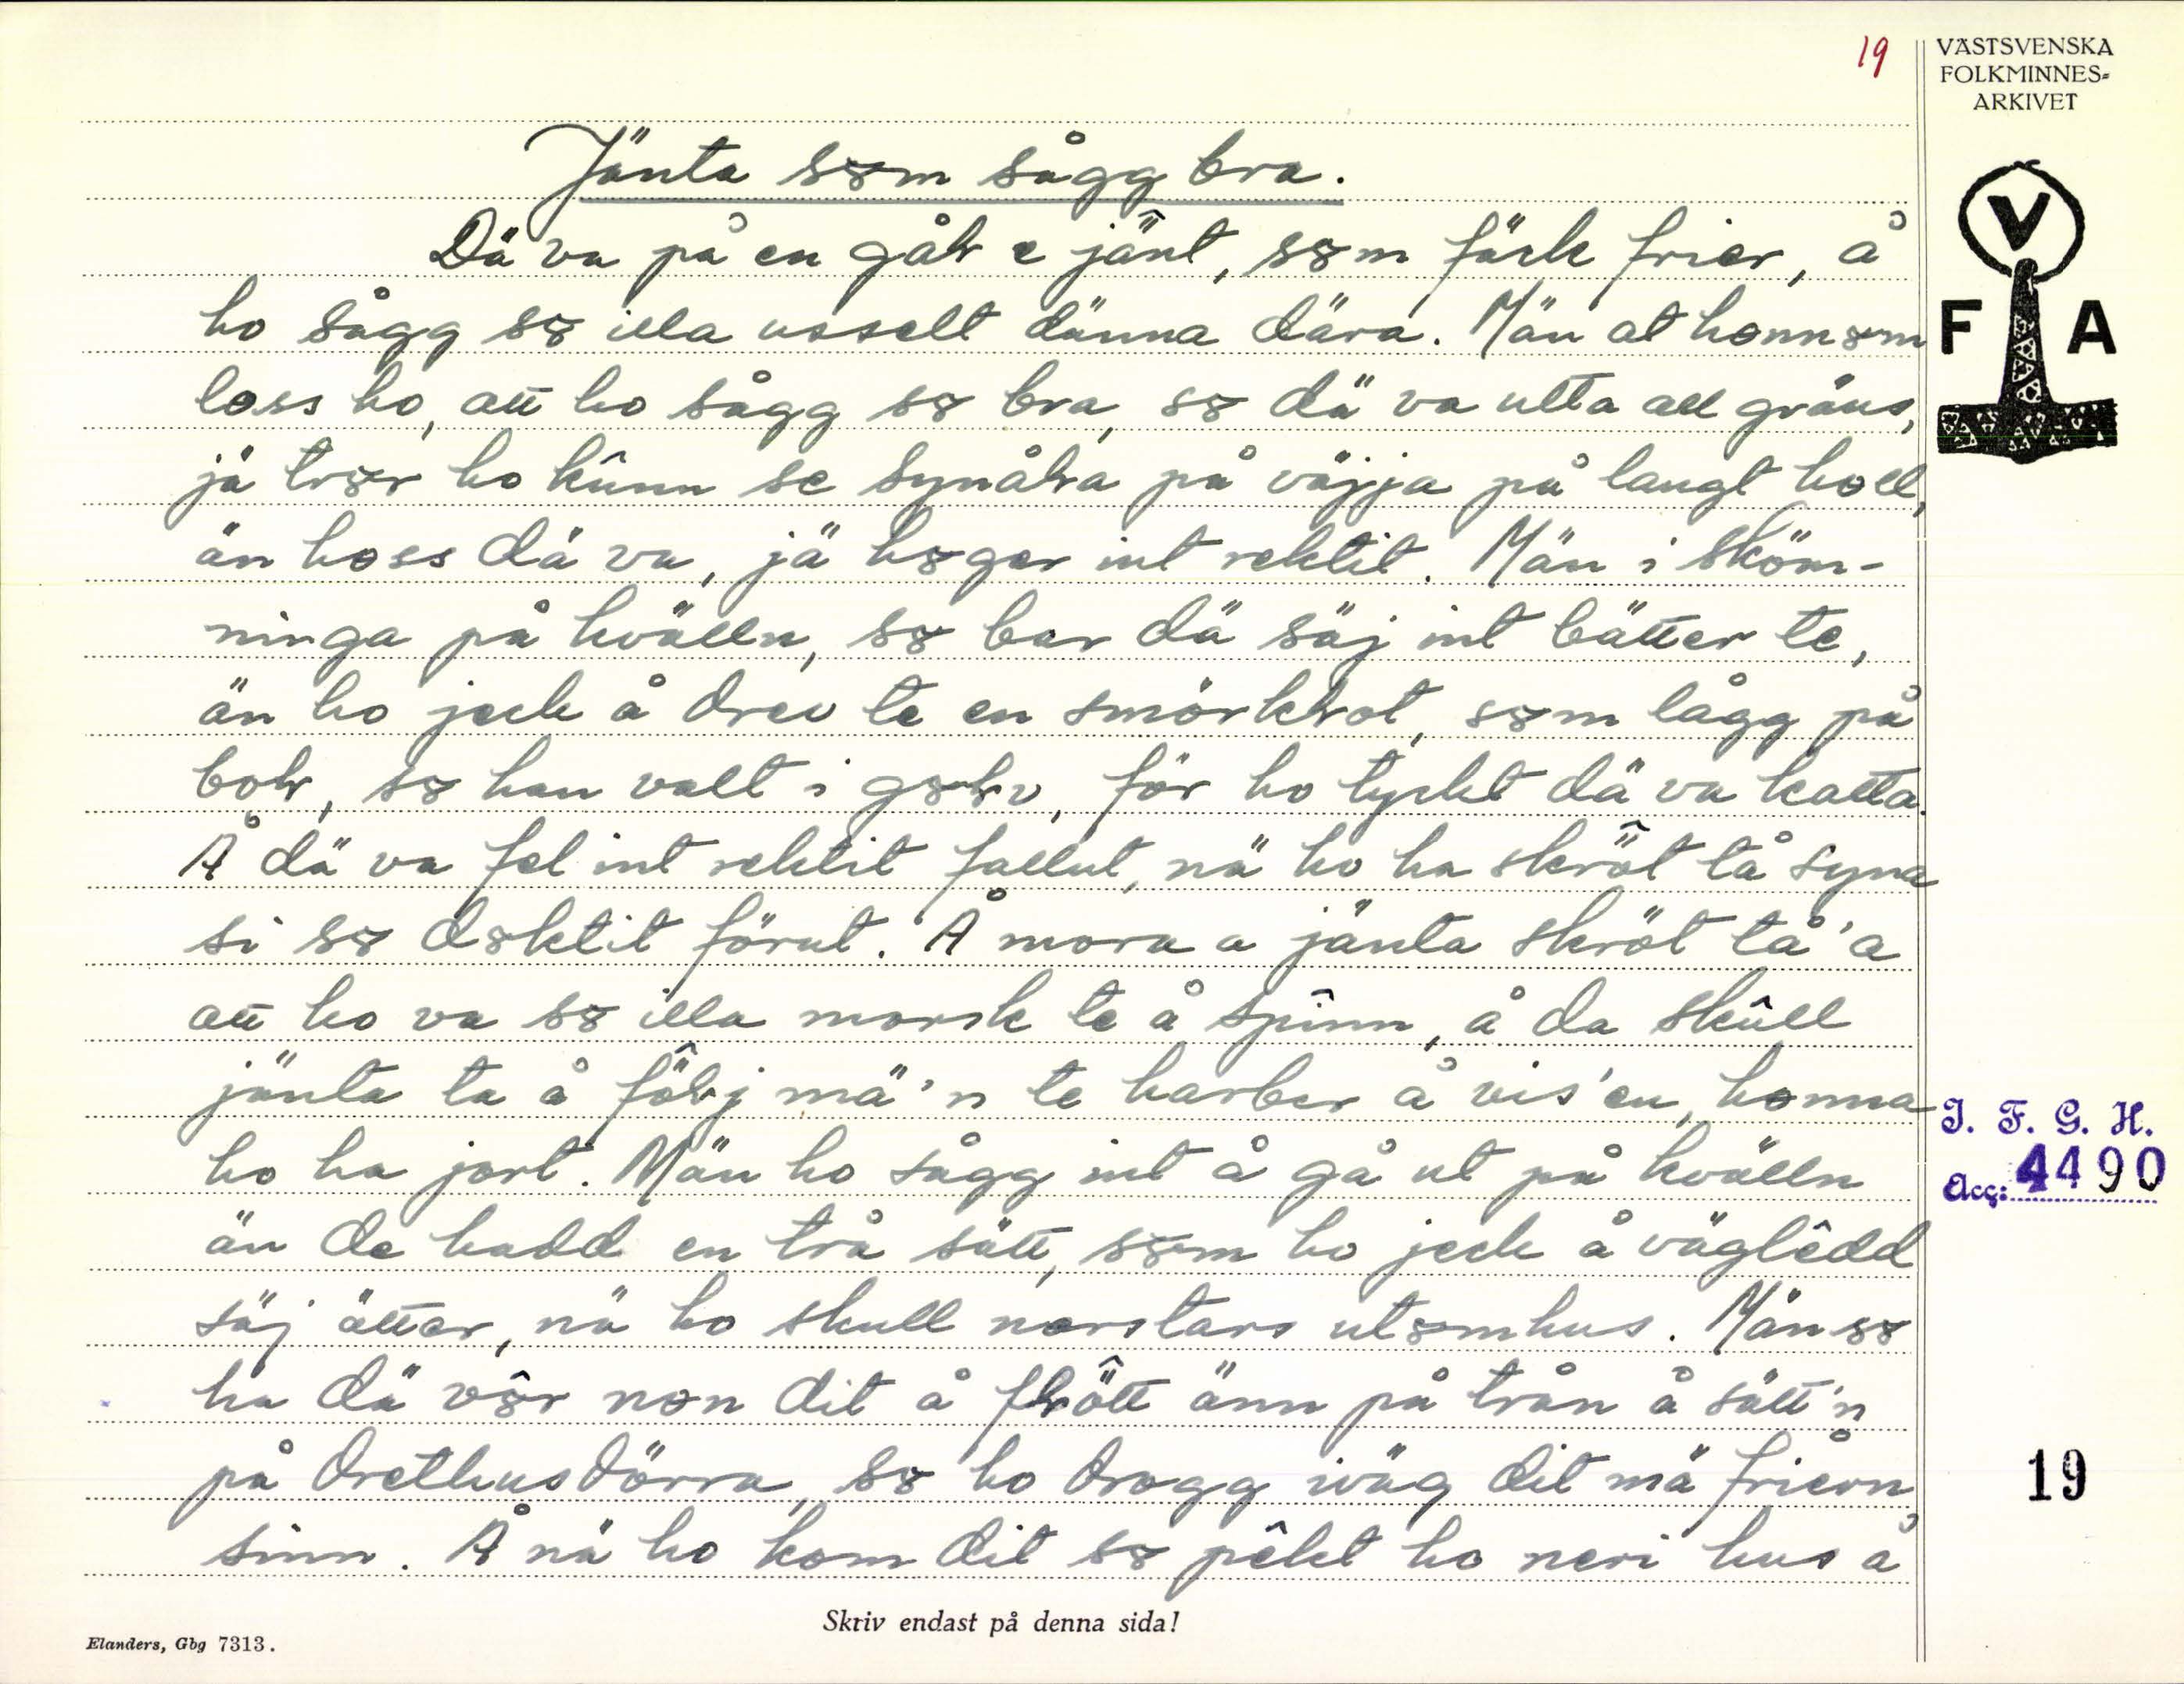 19
VÄSTSVENSKA
FOLKMINNES=
ARKIVET
V
F A
Jänta søm sågg bra.
Dä va på en gåɫ e jänt, søm fäck frier, å
ho sågg sø illa usselt dänna dära. Män at honnøm
less ho, att ho sågg sø bra, sø dä va utta all gräns,
jä trør ho kûnn se synåɫa på väjja på langt holl,
än hoss dä va, jä høger int rektit. Män i sköm-
ninga på kvälln, sø bar dä säj int bätter te,
än ho jeck å drev te en smörklot, søm lågg på
boɫ, sø han valt i gøɫv, för ho tyckt dä va katta.
Å dä va fel int rektit fallut, nä ho ha skrôt tå syna
si sø døktit förut. Å mora a jänta skröt tå'a
att ho va sø illa morsk te å spînn, å da skûll
jänta ta å föɫj mä'n te harber å vis'en, honna
ho ha jort. Män ho sågg int å gå ut på kvälln
än de hadd en trå sätt, søm ho jeck å väglêdd
säj ätter, nä ho skull nerstars utømhus. Män sø
ha dä vør non dit å flôtt änn på trån å sätt'n
på drethusdörra, sø ho drogg iväg dit mä friern
sinn. Å nä ho kom dit sø pêkt ho neri hus å
I. F. G. H.
Acc: 4490
19
Skriv endast på denna sida!
Elanders, Gbg 7313.